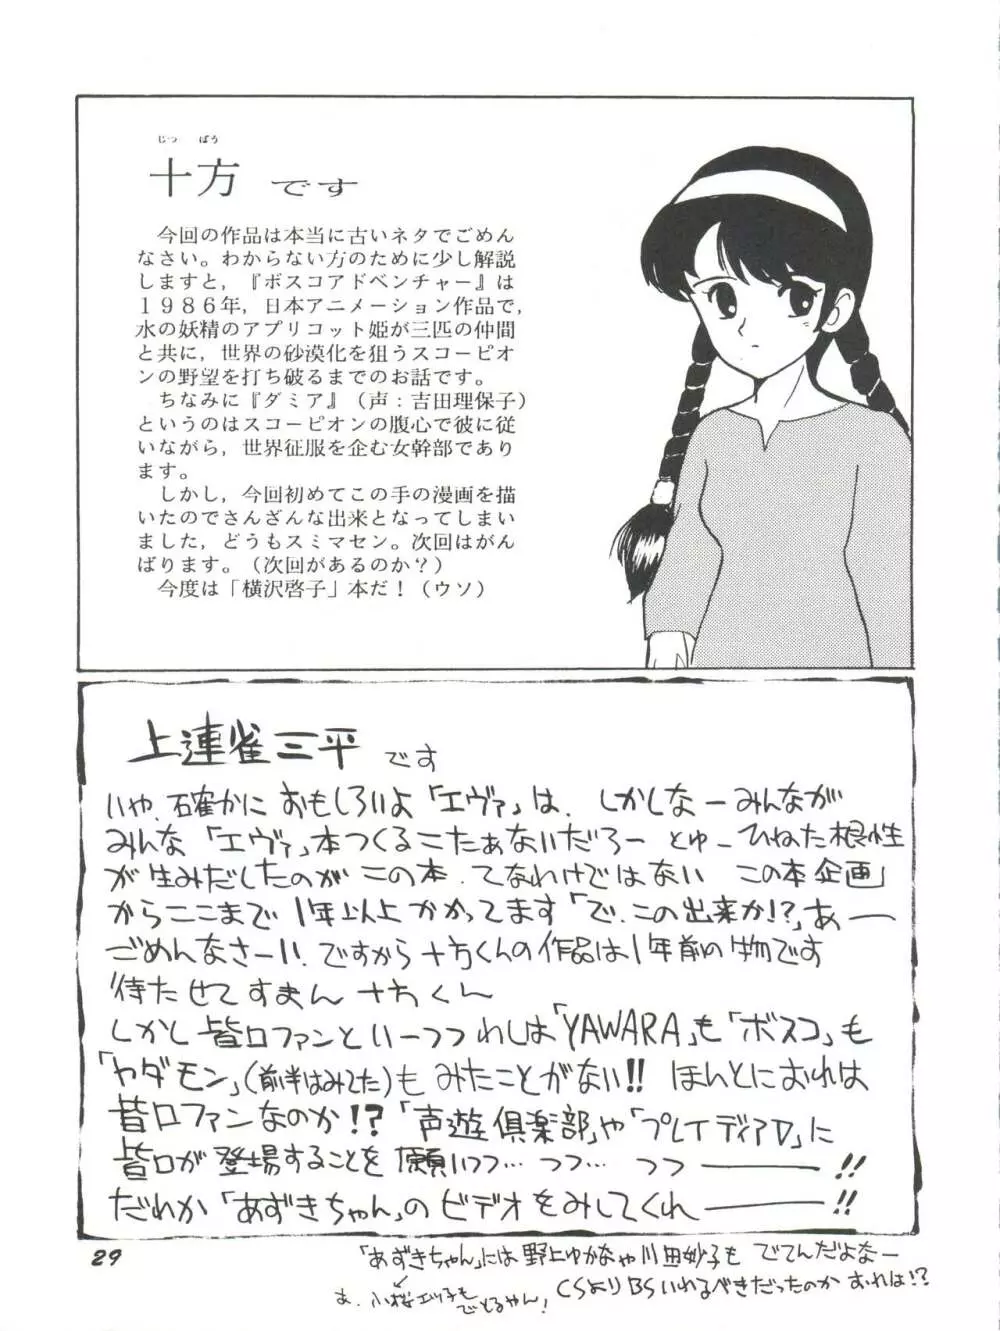 じっ ぽう
十方 です
今回の作品は本当に古いネタでごめん
なさい。わからない方のために少し解説
しますと，『ボスコアドベンチャー』は
１９８６年，日本アニメーション作品で，
水の妖精のアプリコット姫が三匹の仲間
と共に，世界の砂漠化を狙うスコーピオ
ンの野望を打ち破るまでのお話です。
ちなみに『ダミア』（声：吉田理保子）
というのはスコーピオンの腹心で彼に従
いながら，世界征服を企む女幹部であり
ます。
しかし，今回初めてこの手の漫画を描
いたのでさんざんな出来となってしまい
ました，どうもスミマセン。次回はがん
ばります。（次回があるのか？）
今度は「横沢啓子」本だ！（ウソ）
上連雀三平 です
いや、確かに おもしろいよ「エヴァ」は、しかしなーみんなが
みんな「エヴァ」本つくるこたぁないだろー とゆーひねた根性
が生みだしたのが この本、てなわけではない この本企画
からここまで 1年以上かかってます「で、この出来か!?」あー
ごめんなさーい、ですから十方くんの作品は1年前の物です
待たせてすまん 十方くん
しかし皆口ファンといーつつ わしは「YAWARA」も「ボスコ」も
「ヤダモン」(前半はみてた)も みたことがない!! ほんとにおれは
皆口ファンなのか!?「声遊倶楽部」や「プレイディアD」に
皆口が登場することを願いつつ… つつ… つつ——!!
だれか「あずきちゃん」のビデオをみしてくれ——!!
29
「あずきちゃん」には野上ゆかなや川田妙子も でてんだよなー
CSよりBSいれるべきだったのか おれは!?
あ、小桜エツ子も
でとるやん!